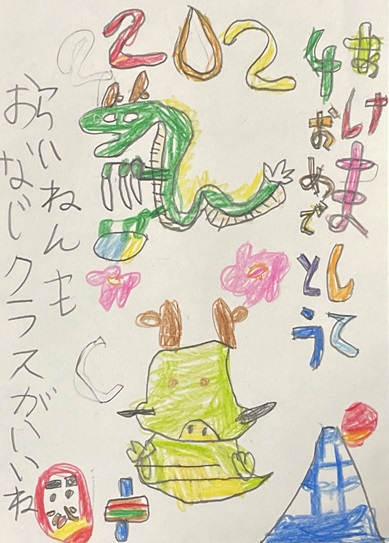 2024
あけまして
おめでとう
らいねんも
おなじクラスがいいね